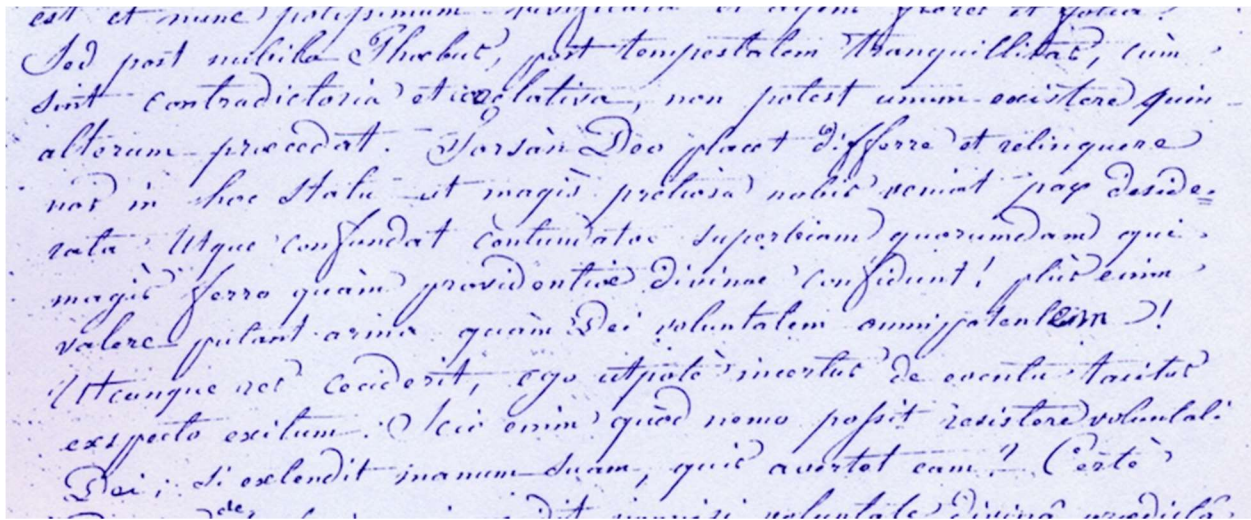 est et nunc potissimum
Sed post nubila Phoebus, post tempestatem tranquillitas, cùm
sint contradictoria et correlativa, non potest unum existere quin
alterum præcedat. Forsàn Deo placet differre et relinquere
nos in hoc statu ut magìs pretiosa nobis veniat pax deside=
rata Utque confundat contumatoe superbiam quorumdam qui
magìs ferro quàm providentiæ divinae confidunt! plùs enim
valere putant arma quàm Dei voluntatem omnipotentem!
Utcunque res ceciderit, ego utpotè incertus de eventu tacitus
exspecto exitum. Scio enim quòd nemo possit resistere voluntati
Dei; si extendit manum suam, quis avertet eam? Certè
de voluntate divinâ